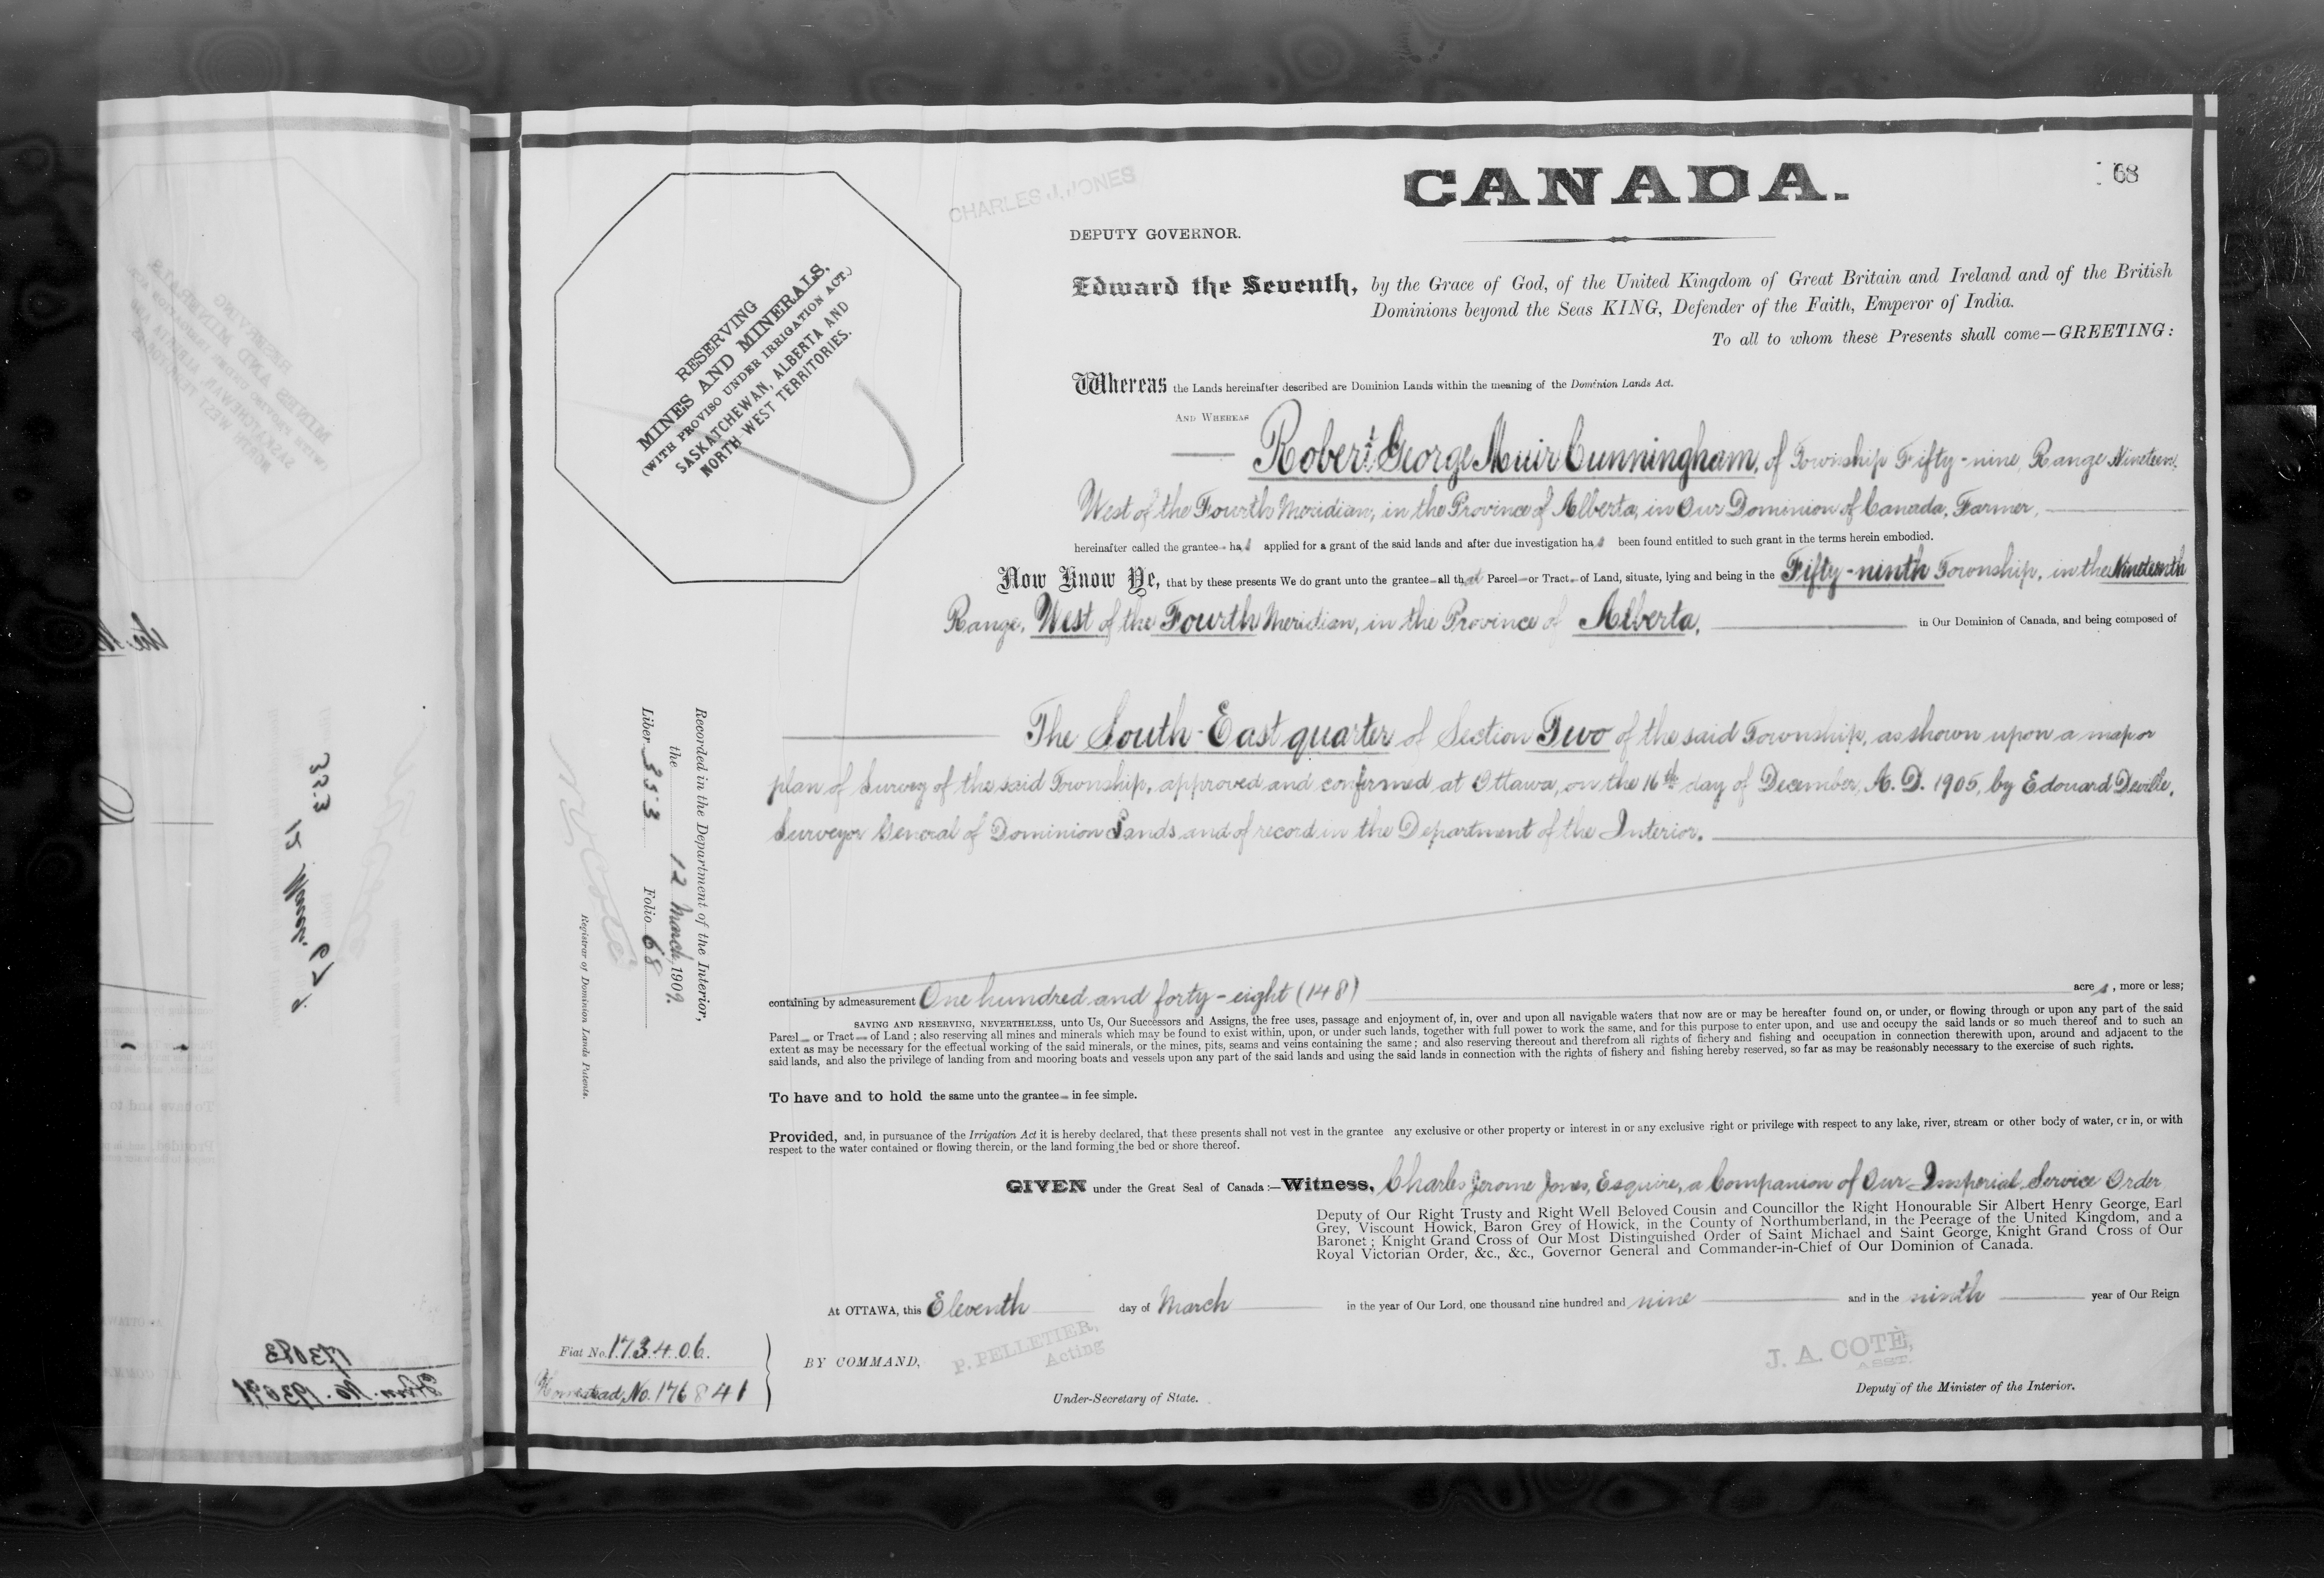 68
CANADA.
CHARLES J. JONES
DEPUTY GOVERNOR.
RESERVING
MINES AND MINERALS,
(WITH PROVISO UNDER IRRIGATION ACT.)
SASKATCHEWAN, ALBERTA AND
NORTH WEST TERRITORIES.
Edward the Seventh, by the Grace of God, of the United Kingdom of Great Britain and Ireland and of the British
Dominions beyond the Seas KING, Defender of the Faith, Emperor of India.
To all to whom these Presents shall come—GREETING:
Whereas the Lands hereinafter described are Dominion Lands within the meaning of the Dominion Lands Act.
AND WHEREAS
Robert George Muir Cunningham, of Township Fifty-nine, Range Nineteen,
West of the Fourth Meridian, in the Province of Alberta, in Our Dominion of Canada, Farmer,
hereinafter called the grantee has applied for a grant of the said lands and after due investigation has been found entitled to such grant in the terms herein embodied.
Now Know Ye, that by these presents We do grant unto the grantee all that Parcel or Tract of Land, situate, lying and being in the Fifty-ninth Township, in the Nineteenth
Range, West of the Fourth Meridian, in the Province of Alberta, in Our Dominion of Canada, and being composed of
The South-East quarter of Section Two of the said Township, as shown upon a map or
plan of Survey of the said Township, approved and confirmed at Ottawa, on the 16th day of December, A. D. 1905, by Edouard Deville,
Surveyor General of Dominion Lands and of record in the Department of the Interior.
containing by admeasurement One hundred and forty-eight (148) acres, more or less;
SAVING AND RESERVING, NEVERTHELESS, unto Us, Our Successors and Assigns, the free uses, passage and enjoyment of, in, over and upon all navigable waters that now are or may be hereafter found on, or under, or flowing through or upon any part of the said
Parcel or Tract of Land; also reserving all mines and minerals which may be found to exist within, upon, or under such lands, together with full power to work the same, and for this purpose to enter upon, and use and occupy the said lands or so much thereof and to such an
extent as may be necessary for the effectual working of the said minerals, or the mines, pits, seams and veins containing the same; and also reserving thereout and therefrom all rights of fishery and fishing and occupation in connection therewith upon, around and adjacent to the
said lands, and also the privilege of landing from and mooring boats and vessels upon any part of the said lands and using the said lands in connection with the rights of fishery and fishing hereby reserved, so far as may be reasonably necessary to the exercise of such rights.
To have and to hold the same unto the grantee in fee simple.
Provided, and, in pursuance of the Irrigation Act it is hereby declared, that these presents shall not vest in the grantee any exclusive or other property or interest in or any exclusive right or privilege with respect to any lake, river, stream or other body of water, or in, or with
respect to the water contained or flowing therein, or the land forming the bed or shore thereof.
GIVEN under the Great Seal of Canada:—Witness, Charles Jerome Jones, Esquire, a Companion of Our Imperial Service Order
Deputy of Our Right Trusty and Right Well Beloved Cousin and Councillor the Right Honourable Sir Albert Henry George, Earl
Grey, Viscount Howick, Baron Grey of Howick, in the County of Northumberland, in the Peerage of the United Kingdom, and a
Baronet; Knight Grand Cross of Our Most Distinguished Order of Saint Michael and Saint George, Knight Grand Cross of Our
Royal Victorian Order, &c., &c., Governor General and Commander-in-Chief of Our Dominion of Canada.
At OTTAWA, this Eleventh day of March in the year of Our Lord, one thousand nine hundred and nine and in the ninth year of Our Reign
BY COMMAND,
P. PELLETIER,
Acting
Under-Secretary of State.
J. A. COTÉ,
ASST.
Deputy of the Minister of the Interior.
Fiat No. 173406.
Homestead, No. 176841
Recorded in the Department of the Interior,
the 12 March 1909.
Liber 353 Folio 68
N. O. Coté
Registrar of Dominion Lands Patents.